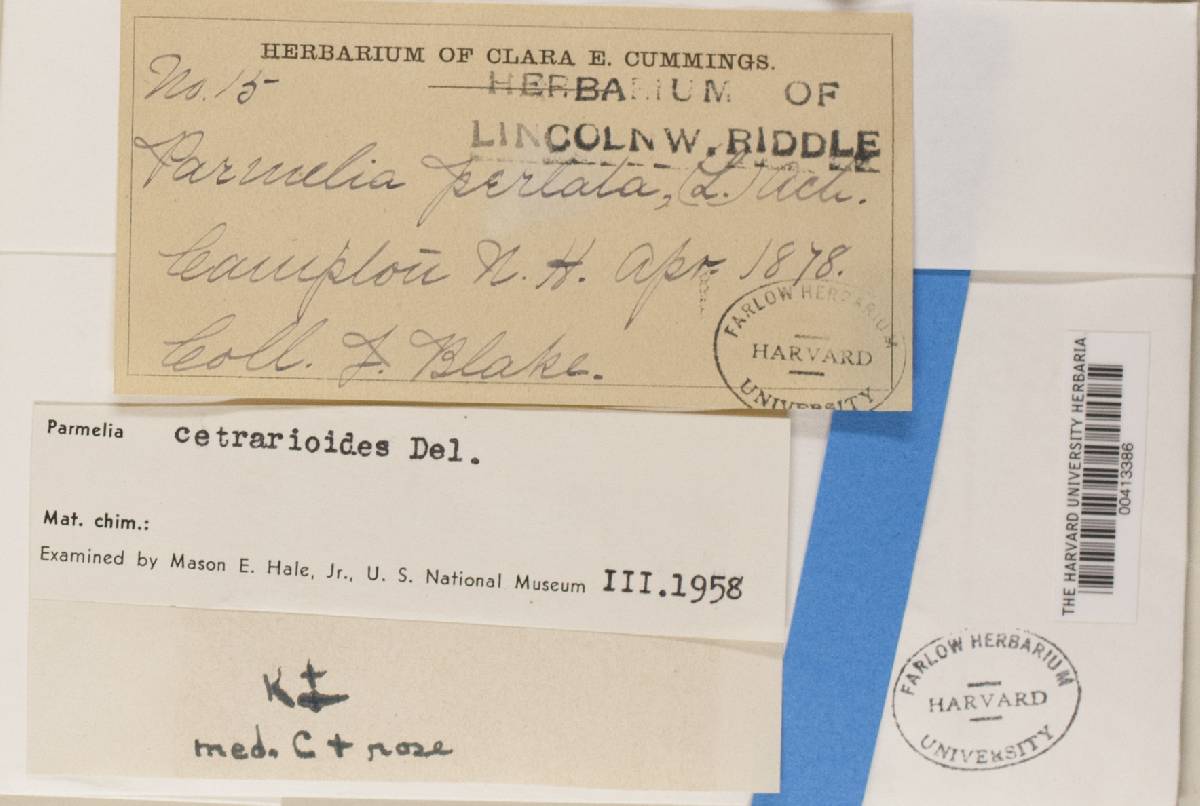 HERBARIUM OF CLARA E. CUMMINGS.
No. 15
HERBARIUM OF
LINCOLN W. RIDDLE
Parmelia perlata, (L.) Ach.
Campton N. H. Apr. 1878.
Coll. J. Blake.
FARLOW HERBARIUM
HARVARD
UNIVERSITY
Parmelia cetrarioides Del.
Mat. chim.:
Examined by Mason E. Hale, Jr., U. S. National Museum III.1958
K±
med. C + rose
THE HARVARD UNIVERSITY HERBARIA
00413386
FARLOW HERBARIUM
HARVARD
UNIVERSITY